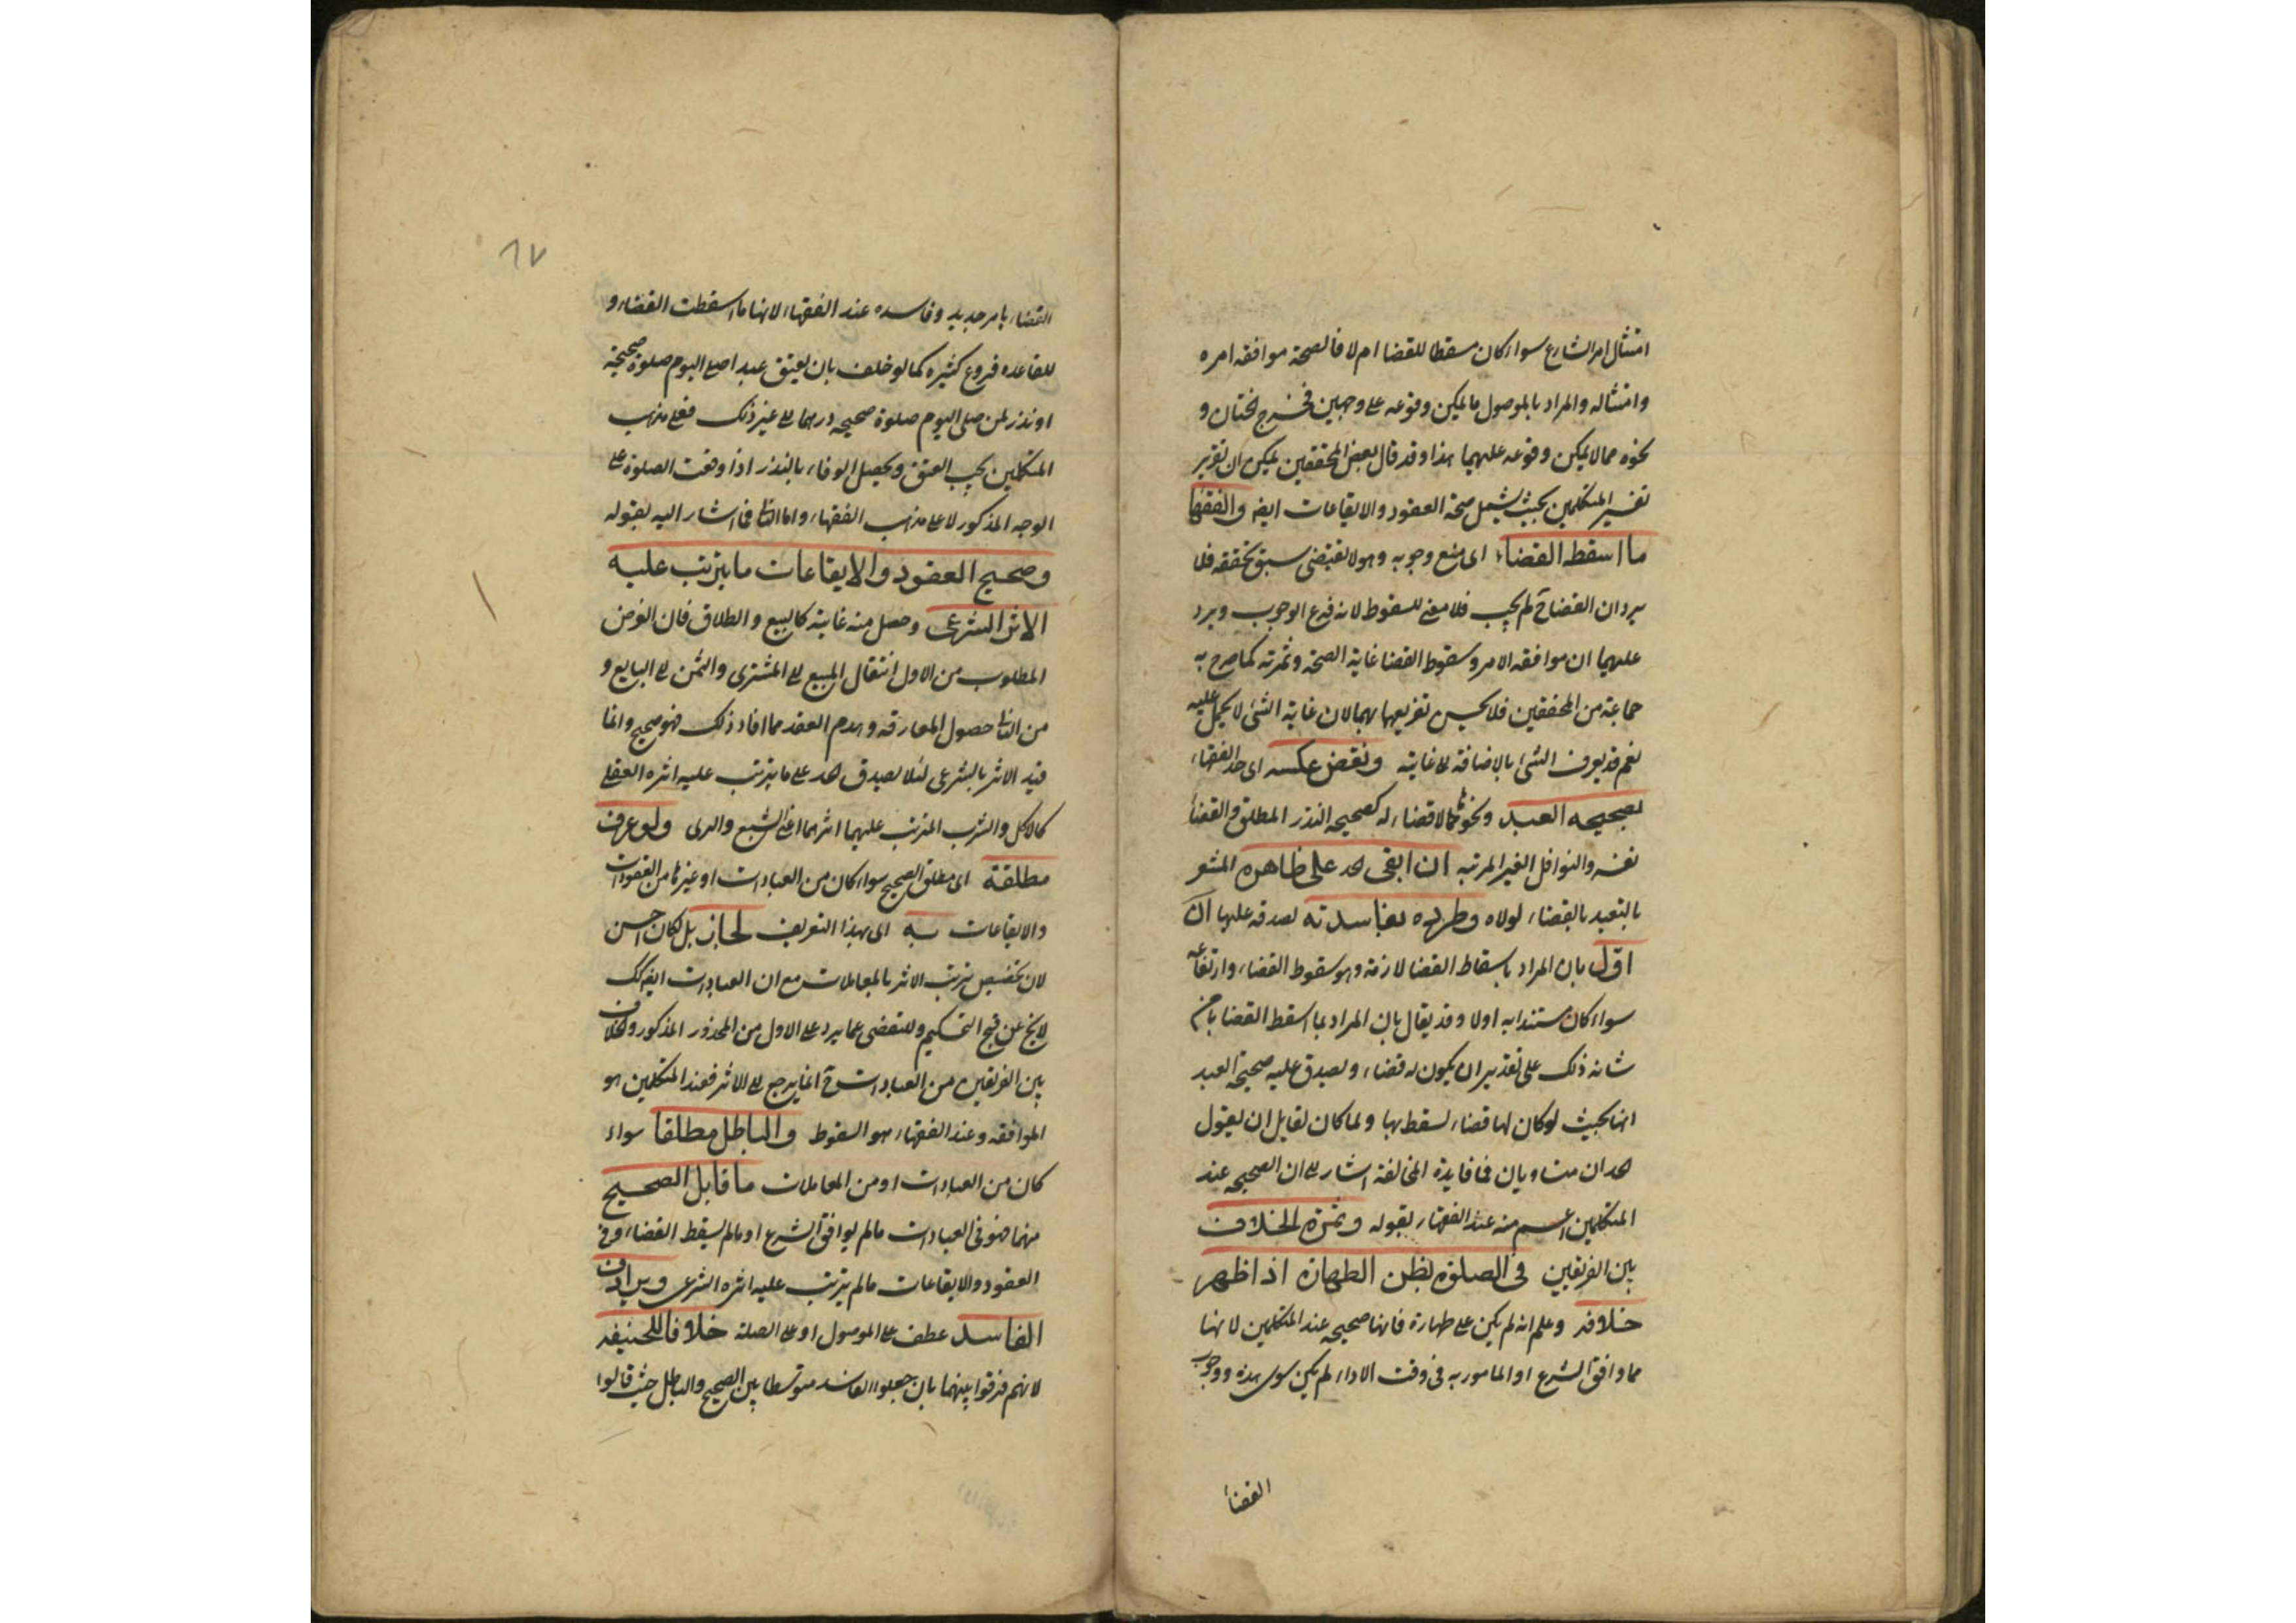 امتثال امر الشارع سواء كان مسقطا للقضا ام لا فالصحة موافقة امره
وامتثاله والمراد بالموصول ما يمكن وقوعه على وجهين فخرج الختان و
نحوه مما لا يمكن وقوعه عليهما هذا وقد قال بعض المحققين يمكن ان تقرير
تفسير المتكلمين بحيث يشمل صحة العقود والايقاعات ايضا والفقها
ما اسقط القضاء اى منع وجوبه وهو لا تقتضى سبق تحققه فلا
يرد ان القضا ح لم يجب فلا معنى للسقوط لانه فرع الوجوب ويرد
عليهما ان موافقة الامر وسقوط القضا غاية الصحة وثمرته كما صرح به
جماعة من المحققين فلا يحسن تفريعها بهما لان غاية الشئ لا يحمل عليه
نعم قد يعرف الشئ بالاضافة الى غايته ونقض عكسه اى حد الفقهاء
بصحيحه العيد ونحوها مما لا قضاء له كصحيحه النذر المطلق والقضا
نفسه والنوافل الغير المرتبه ان ابقى حد على ظاهره المشعر
بالتعبد بالقضاء لولاه وطرده بفاسدته لصدقه عليها ان
اول بان المراد باسقاط القضا لازمه وهو سقوط القضاء وارتفاعه
سواء كان مستندا به اولا وقد يقال بان المراد بما اسقط القضا ما من
شانه ذلك على تقدير ان يكون له قضاء ويصدق عليه صحيحة العيد
انها بحيث لو كان لها قضاء لسقط بها ولما كان لقايل ان يقول
حدان متساويان فما فايدة المخالفة اشار الى ان الصحيحه عند
المتكلمين اعم منه عند الفقهاء بقوله وثمرة الخلاف
بين الفريقين فى الصلوة بظن الطهارة اذا ظهر
خلافه وعلم انه لم يكن على طهارة فانها صحيحه عند المتكلمين لانها
مما وافق الشرع او المامور به فى وقت الاداء لم يكن سوى هذه ووجوب
القضا
٦٧
القضاء بامر جديد وفاسده عند الفقهاء لانها ما اسقطت القضاء و
للقاعده فروع كثيره كما لو حلف بان يعتق عبدا صلى اليوم صلوة صحيحة
او نذر لمن صلى اليوم صلوة صحيحه درهما الى غير ذلك فعلى مذهب
المتكلمين يجب العتق ويحصل الوفاء بالنذر اذا وقعت الصلوة على
الوجه المذكور لا على مذهب الفقهاء واما الثانى فاشار اليه بقوله
وصحيح العقود والايقاعات ما يترتب عليه
الاثر الشرعى وحصل منه غايته كالبيع والطلاق فان الغرض
المطلوب من الاول انتقال المبيع الى المشترى والثمن الى البايع و
من الثانى حصول المفارقه وهدم العقد فما افاد ذلك فهو صحيح وانما
قيد الاثر بالشرعى لئلا يصدق حد على ما يترتب عليه اثره العقلى
كالاكل والشرب المترتب عليهما اثرهما اعنى الشبع والرى ولو عرف
مطلقه اى مطلق الصحيح سواء كان من العبادات او غيرها من العقودات
والايقاعات به اى بهذا التعريف لجاز بل لكان احسن
لان تخصيص ترتب الاثر بالمعاملات مع ان العبادات ايضا كك
لا يخ عن قبح التحكيم وللتفصى عما يرد على الاول من المحذور المذكور والخلاف
بين الفريقين من العبادات ح انما يرجع الى الاثر فعند المتكلمين هو
الموافقه وعند الفقهاء هو السقوط والباطل مطلقا سواء
كان من العبادات او من المعاملات ما قابل الصحيح
منهما فهو فى العبادات ما لم يوافق الشرع او ما لم يسقط القضاء وفى
العقود والايقاعات ما لم يترتب عليه اثره الشرعى ويرادف
الفاسد عطف على الموصول او على الصلة خلافا للحنيفه
لانهم فرقوا بينهما بان جعلوا الفاسد متوسطا بين الصحيح والباطل حيث قالوا